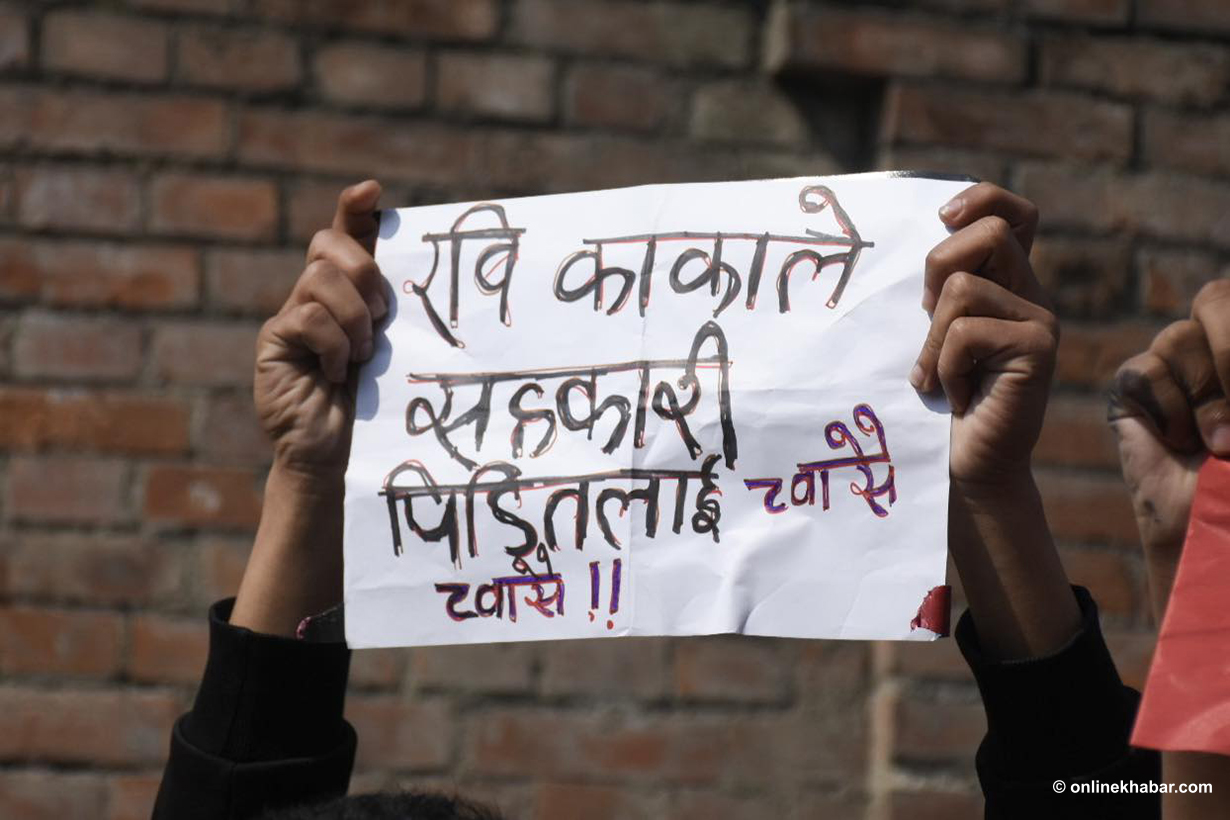 रवि काकाले
सहकारी
पिडितलाई च्वासै
च्वासै !!
© onlinekhabar.com